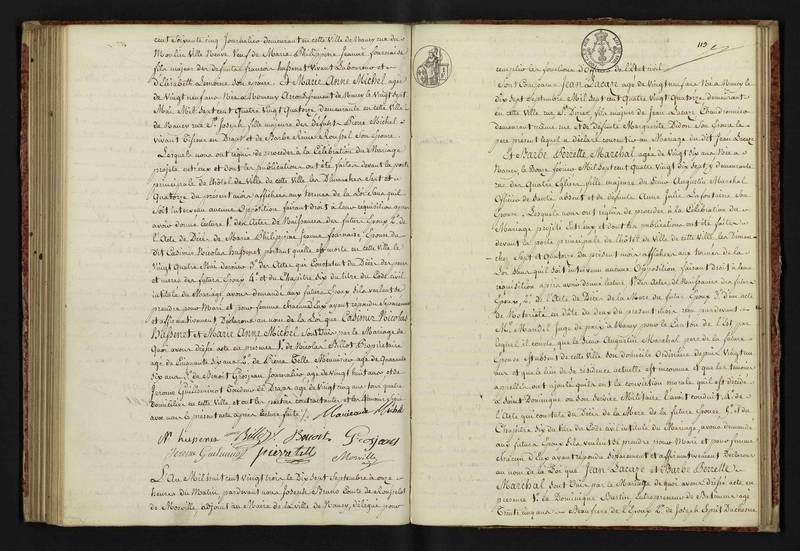 cent Soixante cinq Journalier demeurant en cette Ville de Nancy rue du
Moulin Ville Neuve Veuf de Marie Philippine Jeanne Fournaise
fils majeur des defunts françois hussenet Vivant Laboureur et
d'Elizabeth son Epouse. Et Marie Anne Michel agée
de Vingt neuf ans Née à Arrondissement de Nancy le Vingt Sept
Mai Mil Sept cent Quatre Vingt Quatorze demeurante en cette Ville
de Nancy rue St. Joseph, fille majeure des défunts Pierre Michel
vivant Tisserand en Draps et de Barbe Roussel Son Epouse.
Lesquels nous ont requis de proceder à la Célébration du Mariage
projetté entreux et dont les publications ont été faites devant la porte
principale de l'hôtel de Ville de cette Ville les Dimanches Sept et
Quatorze du présent mois affichées aux termes de la Loi sans quil
soit intervenu aucune Opposition faisant droit à leur requisition après
avoir donné lecture 1°. des Actes de Naissances des futurs Epoux 2°. de
l'Acte de Décès de Marie Philippine Jeanne Fournaise, Epouse du
dit Casimir Nicolas Hussenet portant quelle est morte en cette ville le
Vingt Quatre Mai dernier 3°. des Actes qui Constatent du Décès des peres
et meres des futurs Epoux 4°. et du Chapitre Six du titre du Code civil
intitulé du Mariage, avons demandé aux futurs Epoux s'ils veulent se
prendre pour Mari et pour femme chacun d'eux ayant repondu Séparement
et affirmativement Déclarons au nom de la Loi que Casimir Nicolas
Hussenet et Marie Anne Michel sont Unis par le Mariage de
Quoi avons dressé acte en présence 1°. de Nicolas Billot Propriétaire
agé de Cinquante Six ans 2°. de Pierre Tille Menuisier agé de Quarante
Six ans 3°. de Benoit Grosjean Journalier agé de Vingt huit ans et de
Jerome Guilleminot Tondeur de Draps agé de Vingt cinq ans tous quatre
domiciliés en cette Ville et ont les parties contractantes et les témoins signé
avec nous le présent acte après lecture faite /. Marieanne Michel
N. hussenet Billot Benoit Grosjean
Jerome Guilleminot Pierre tille Morville
L'An Mil huit cent Vingt trois le Dix Sept Septembre à onze
heures du Matin, pardevant nous Joseph Bruno Comte de
de Morville, adjoint au Maire de la ville de Nancy, délégué pour
113
remplir les fonctions d'Officier de l'Etat civil.
Sont Comparus Jean Lacaze agé de Vingt neuf ans Né à Nancy le
Dix Sept Septembre Mil Sept cent Quatre Vingt Quatorze, demeurant
en cette Ville rue St. Dizier, fils majeur de Jean Lacaze
demeurant même rue et de défunte Marguerite Didon Son Epouse le
père présent lequel a déclaré consentir au Mariage du dit Jean Lacaze
Et Barbe Perrette Marchal agée de Vingt Six ans Née à
Nancy, le Douze fevrier Mil Sept cent Quatre Vingt dix Sept, y demeurante
rue des Quatre Eglises fille majeure du Sieur Augustin Marchal
Officier de Santé absent et de défunte Anne Julie Lafontaine Son
Epouse. Lesquels nous ont requis de proceder à la Célébration du
Mariage projetté Entreux et dont les publications ont été faites
devant la porte principale de l'hôtel de Ville de cette Ville, les Diman-
ches Sept et Quatorze du présent mois affichées aux termes de la
Loi Sans quil soit intervenu aucune Opposition faisant droit à leur
requisition après avoir donné lecture 1°. des Actes de Naissances des futurs
Epoux, 2°. de l'Acte de Décès de la Mere du futur Epoux 3°. d'un acte
de Notoriété en date du deux du présent mois reçu pardevant
Mr. Mandel Juge de paix à Nancy pour le Canton de L'Est par
lequel il conste que le Sieur Augustin Marchal pere de la future
Epouse est absent de cette Ville son domicile Ordinaire depuis Vingt un
ans et que le lieu de sa residence actuelle est inconnu et que les témoins
appellés ont ajouté quils ont la conviction morale quil est décédé
à Saint Domingue où son Service Militaire l'avoit conduit, 4°. de
l'Acte qui constate du Décès de la Mere de la future Epouse, 5°. et du
Chapitre Six du titre du Code civil intitulé du Mariage, avons demandé
aux futurs Epoux s'ils veulent se prendre pour Mari et pour femme
chacun d'eux ayant repondu séparement et affirmativement Déclarons
au nom de la Loi que Jean Lacaze et Barbe Perrette
Marchal sont Unis par le Mariage de quoi avons dressé acte en
présence 1°. de Dominique Bastin Entrepreneur de Bâtimens agé
Trente cinq ans – Beau frere de l'Epoux 2°. de Joseph Duchesne